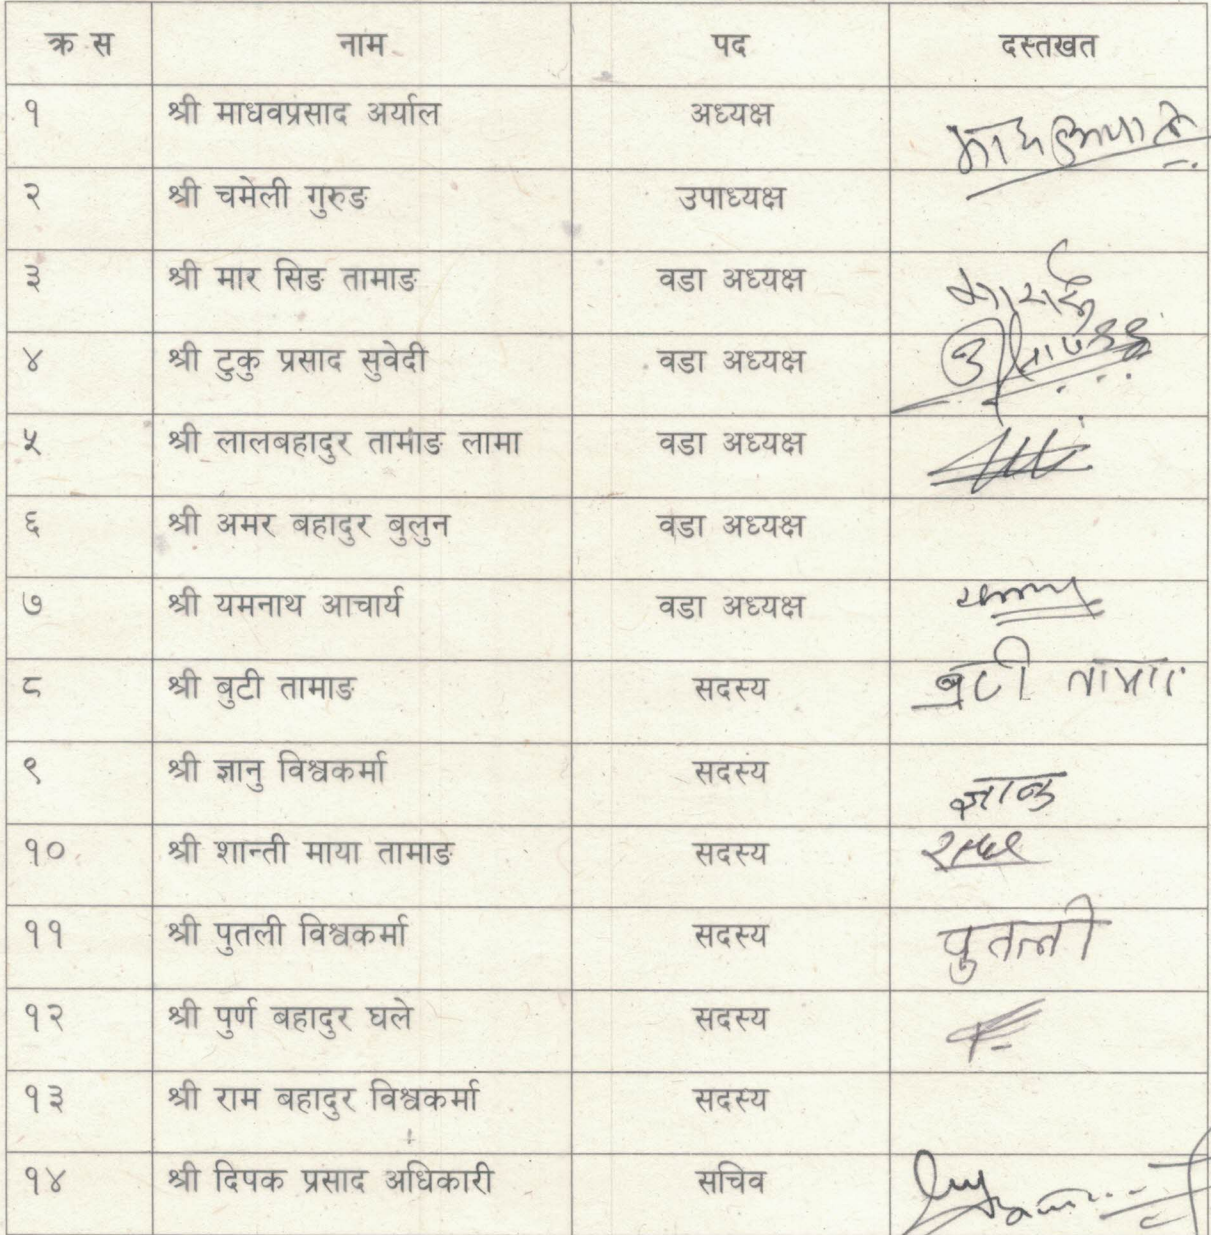 क्र स नाम पद दस्तखत
१ श्री माधवप्रसाद अर्याल अध्यक्ष
२ श्री चमेली गुरुङ उपाध्यक्ष
३ श्री मार सिङ तामाङ वडा अध्यक्ष
४ श्री टुकु प्रसाद सुवेदी वडा अध्यक्ष
५ श्री लालबहादुर तामाङ लामा वडा अध्यक्ष
६ श्री अमर बहादुर बुलुन वडा अध्यक्ष
७ श्री यमनाथ आचार्य वडा अध्यक्ष
८ श्री बुटी तामाङ सदस्य बुटी तामाङ
९ श्री ज्ञानु विश्वकर्मा सदस्य ज्ञानु
१० श्री शान्ती माया तामाङ सदस्य
११ श्री पुतली विश्वकर्मा सदस्य पुतली
१२ श्री पुर्ण बहादुर घले सदस्य
१३ श्री राम बहादुर विश्वकर्मा सदस्य
१४ श्री दिपक प्रसाद अधिकारी सचिव